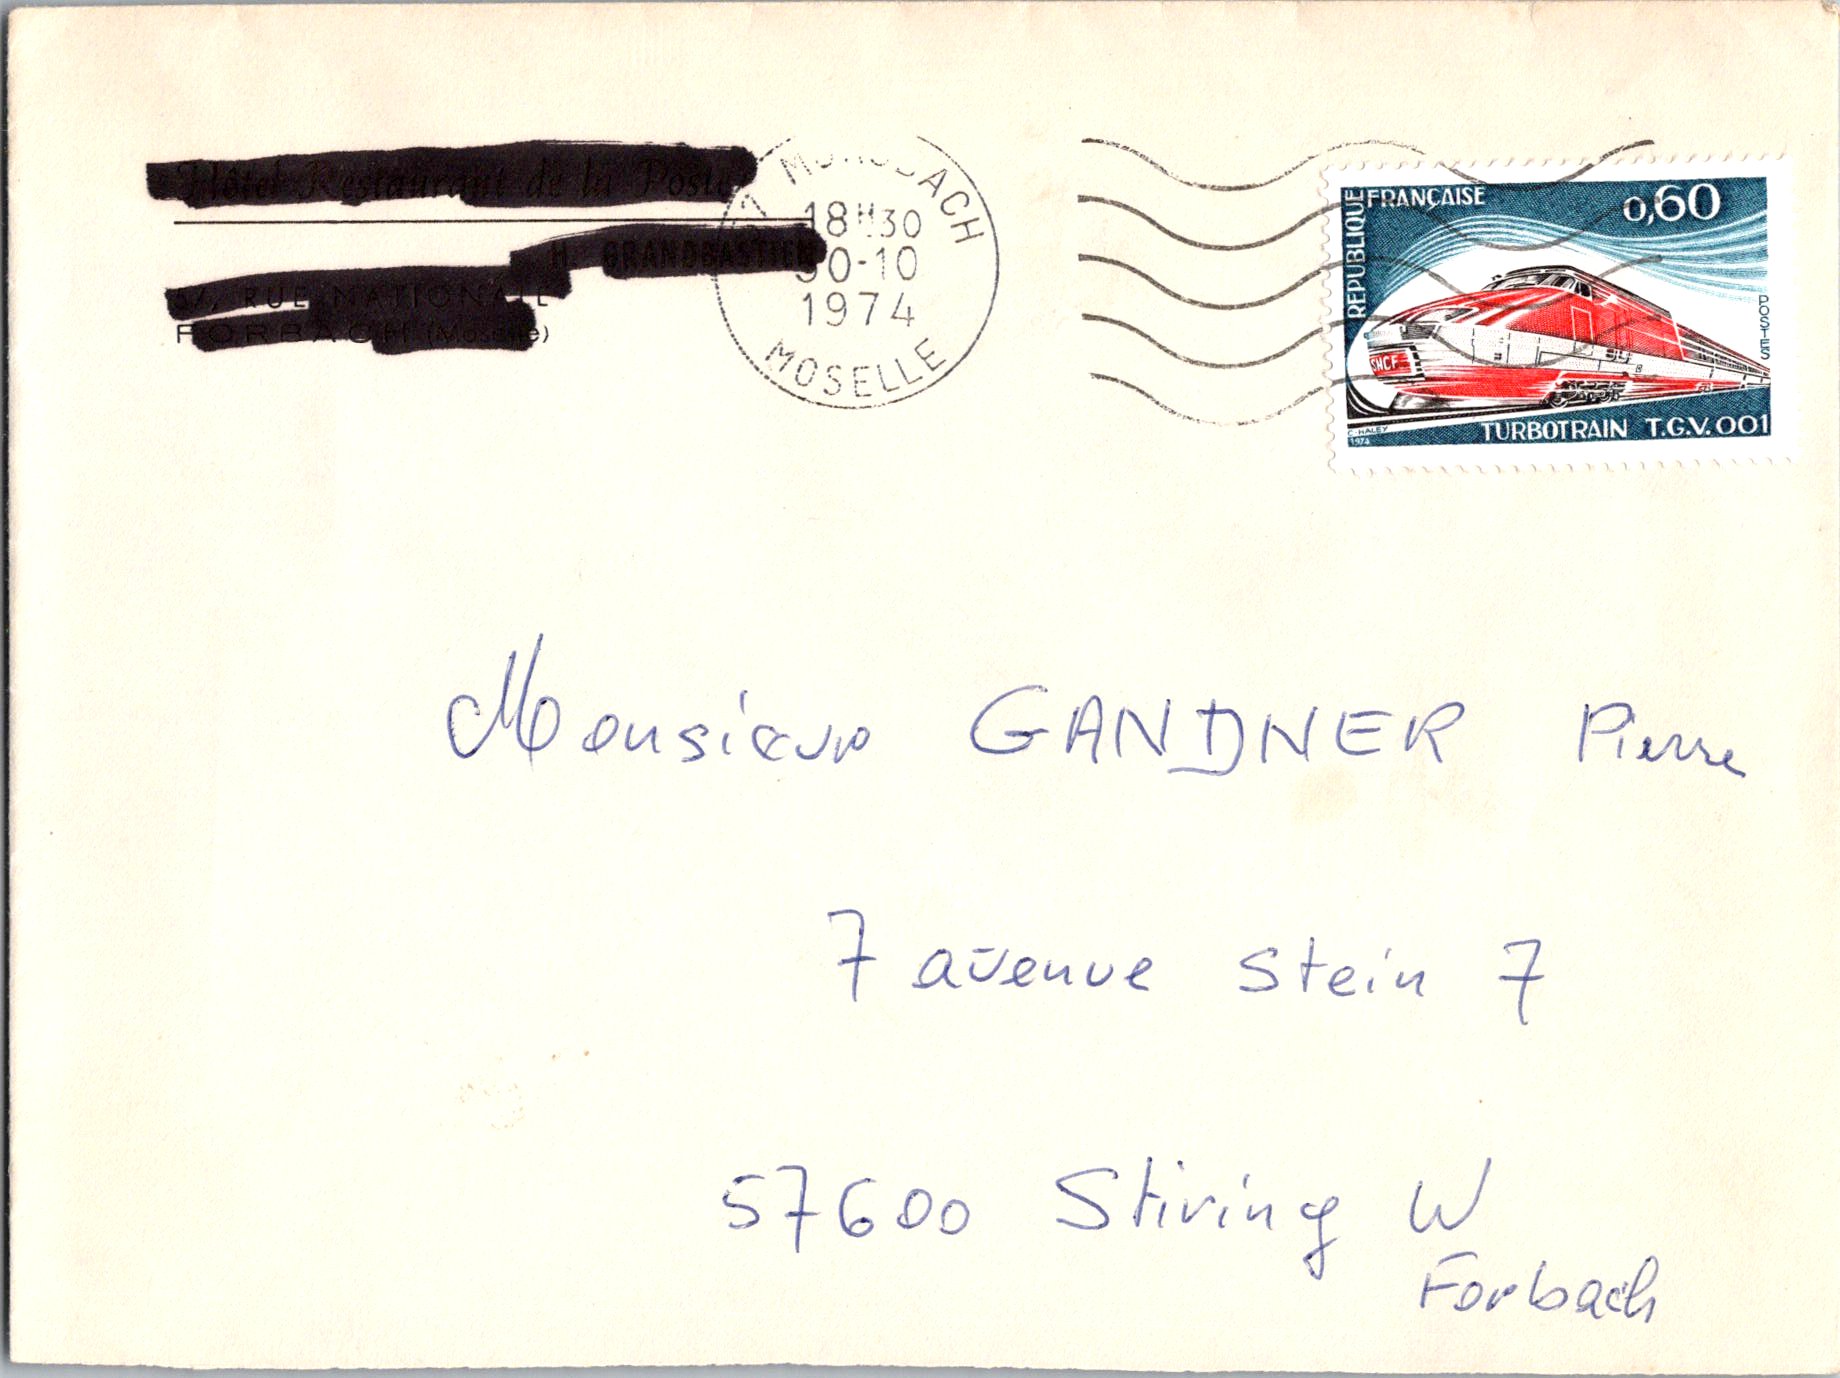 Hôtel Restaurant de la Poste
H. GRANDBASTIEN
57, RUE NATIONALE
FORBACH (Moselle)
57 MORSBACH
18H30
30-10
1974
MOSELLE
REPUBLIQUE FRANÇAISE
0,60
POSTES
SNCF
C. HALEY
1974
TURBOTRAIN T.G.V. 001
Monsieur GANDNER Pierre
7 avenue Stein 7
57600 Stiring W
Forbach